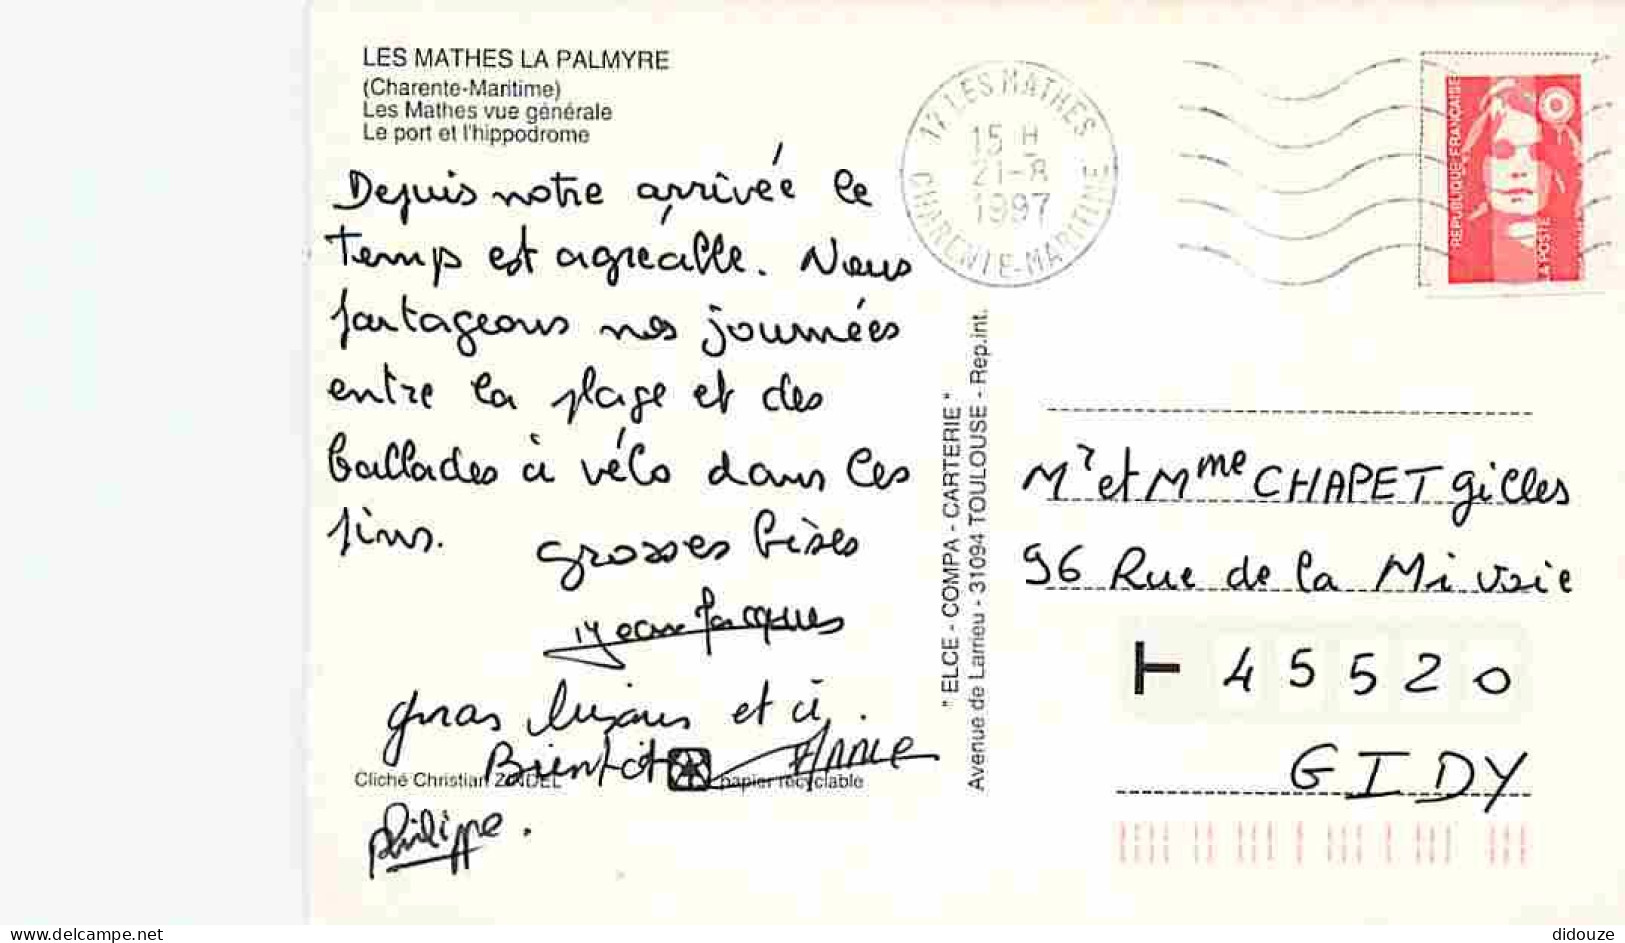 LES MATHES LA PALMYRE
(Charente-Maritime)
Les Mathes vue générale
Le port et l'hippodrome
Depuis notre arrivée le
temps est agréable. Nous
partageons nos journées
entre la plage et des
ballades à vélo dans les
pins.
grosses bises
Jean Jacques
gros bisous et à
Bientôt Annie
Philippe.
Cliché Christian ZINDEL
papier recyclable
" ELCE - COMPA - CARTERIE "
Avenue de Larrieu - 31094 TOULOUSE - Rep.int.
17 LES MATHES
15 H
21-8
1997
CHARENTE-MARITIME
REPUBLIQUE FRANÇAISE
LA POSTE
Mr et Mme CHAPET Gilles
96 Rue de la Mi Voie
45520
GIDY
www.delcampe.net
didouze